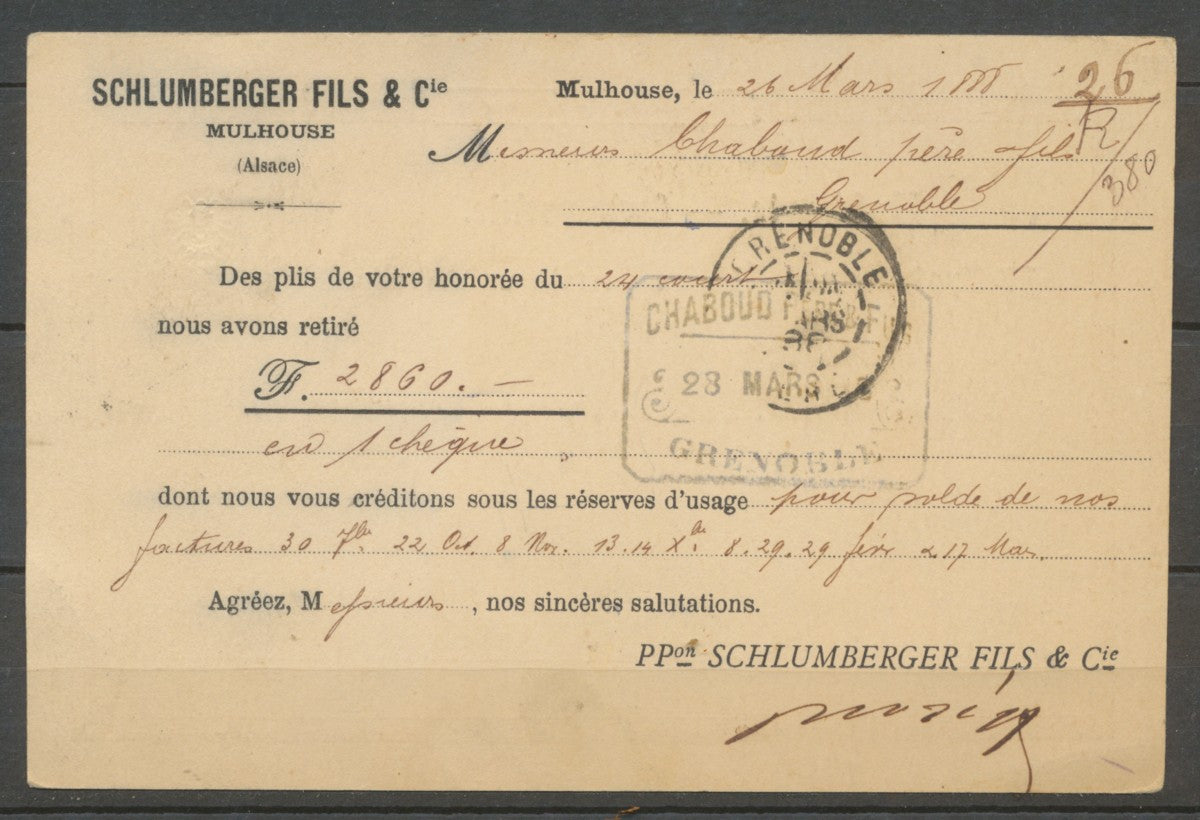 SCHLUMBERGER FILS & Cie
MULHOUSE
(Alsace)
Mulhouse, le 26 Mars 188
26
R
380
Messieurs Chaboud père fils
Grenoble
GRENOBLE
Des plis de votre honorée du 24 court
nous avons retiré
F. 2860. —
en 1 chèque
CHABOUD PÈRE & FILS
28 MARS
GRENOBLE
dont nous vous créditons sous les réserves d'usage pour solde de nos
factures 30 7bre 22 Oct. 8 Nov. 13.14 Xbre 8.29.29 févr & 17 Mars.
Agréez, Messieurs, nos sincères salutations.
PPon SCHLUMBERGER FILS & Cie